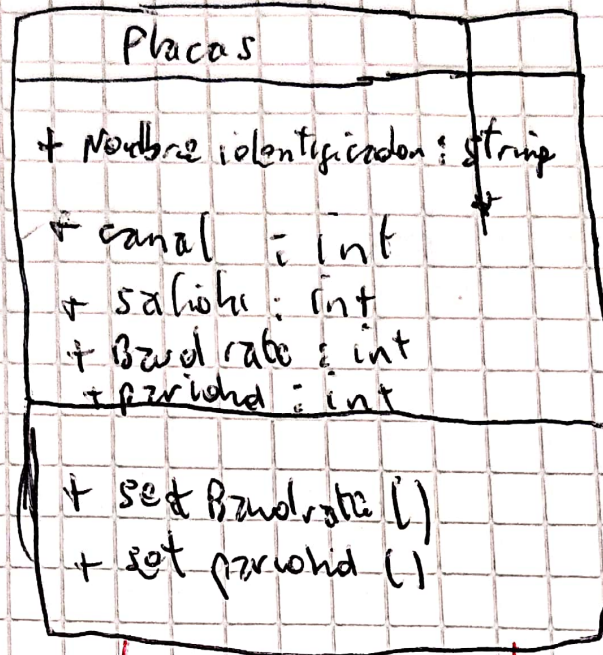 Placas
+ Nombre identificador : string
+ canal : int
+ salida : int
+ Baud rate : int
+ paridad : int
+ set Baudrate ()
+ set paridad ()